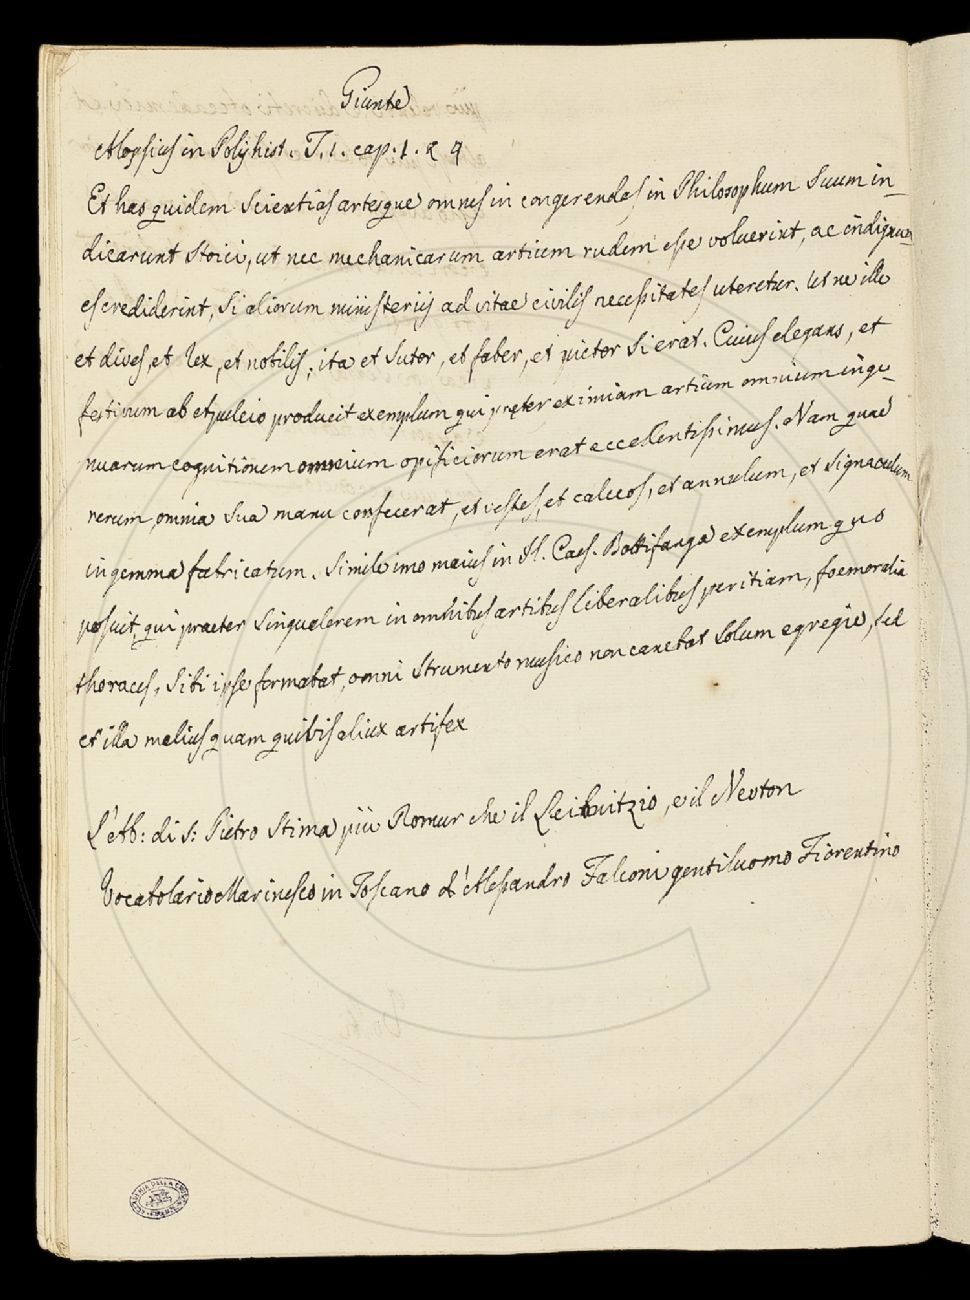 Giunte
Mopsius in Polyhist. T. 1. cap. 1. 2 9
Et has quidem scientias artesque omnes in congerendas in Philosophum suum in_
dicarunt Stoici, ut nec mechanicarum artium rudem esse voluerint, ac indignum
es crediderint, si aliorum ministeriis ad vitae civilis necessitates uteretur. Ut ne ille
et dives, et Rex, et nobilis, ita et Sutor, et faber, et pictor si erat. Cuius elegans, et
festivum ab etpuleio producit exemplum qui praeter eximiam artium omnium inge_
nuarum cognitionem omnium opificiorum erat eccellentissimus. Nam quae
rerum omnia sua manu confecerat, et vestes, et calceos, et annulum, et signaculum
in gemma fabricatum. Simile imo maius in H. Caes. Bottifanga exemplum quo
posuit, qui praeter singularem in omnibus artibus liberalibus peritiam, foemoralia
thoraces, sibi ipse formabat, omni strumento musico non canebat solum egregie, sed
et illa melius quam quibis aliux artifex
L'Ab: di S: Pietro stima più Romur che il Leibnitzio, e il Nevton
Vocabolario Marinesco in Toscano d'Alessandro Falconi gentiluomo Fiorentino